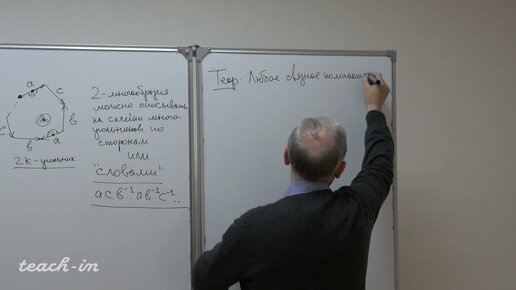 a
c
b
a
b
c
2k-угольник
2-многообразия
можно описывать
как склейки много-
угольников по
сторонам
или
"словами"
a c b⁻¹ a b⁻¹ c⁻¹ ...
Теор: Любое связное компакт
teach-in